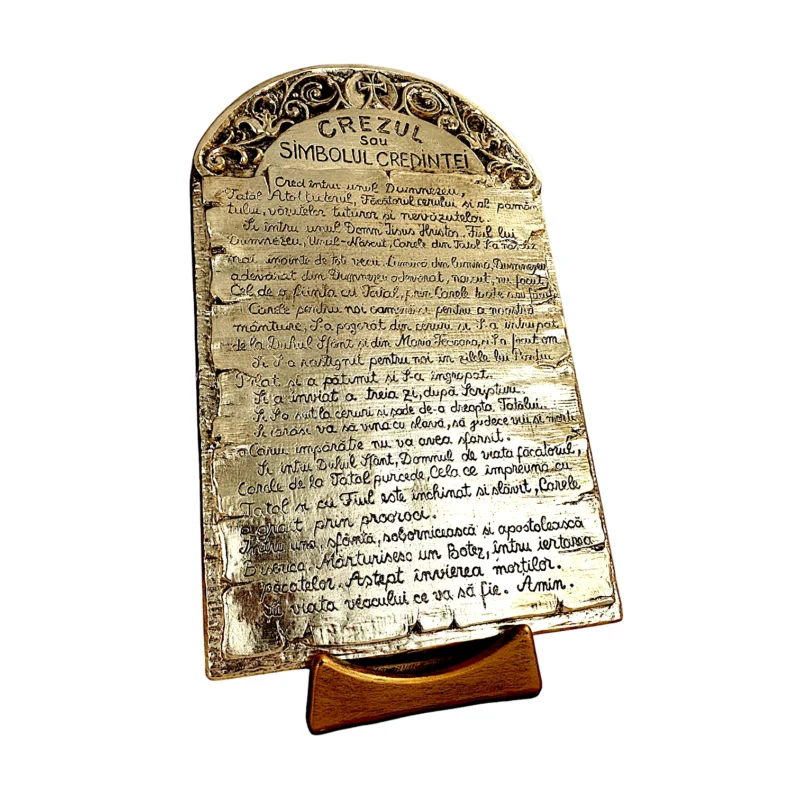 CREZUL
sau
SIMBOLUL CREDINTEI
Cred întru unul Dumnezeu,
Tatăl Atotțiitorul, Făcătorul cerului și al pămân-
tului, văzutelor tuturor si nevăzutelor.
Si întru unul Domn Iisus Hristos, Fiul lui
Dumnezeu, Unul-Născut, Carele din Tatăl S-a născut
mai înainte de toți vecii. Lumină din lumină, Dumnezeu
adevărat din Dumnezeu adevărat, născut, nu făcut,
Cel de o ființă cu Tatăl, prin Carele toate s-au făcut.
Carele pentru noi oamenii si pentru a noastră
mântuire, S-a pogorât din ceruri si S-a întrupat
de la Duhul Sfânt și din Maria Fecioara, si S-a făcut om.
Si S-a răstignit pentru noi în zilele lui Pontiu
Pilat si a pătimit si S-a îngropat.
Si a înviat a treia zi, după Scripturi.
Si S-a suit la ceruri si șade de-a dreapta Tatălui.
Si iarăsi va să vină cu slavă, să judece viii si morții
a Cărui împărăție nu va avea sfarsit.
Si întru Duhul Sfânt, Domnul de viata făcătorul,
Carele de la Tatăl purcede, Cela ce împreună cu
Tatăl si cu Fiul este închinat si slăvit, Carele
a grăit prin prooroci.
Întru una, sfântă, sobornicească si apostolească
Biserică. Mărturisesc un Botez, întru iertarea
păcatelor. Astept învierea mortilor.
Si viata veacului ce va să fie. Amin.